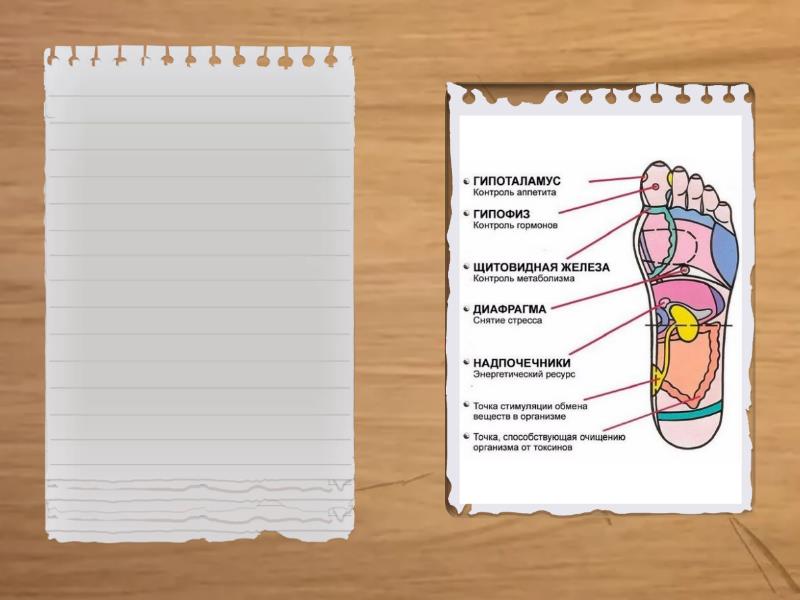 ГИПОТАЛАМУС
Контроль аппетита
ГИПОФИЗ
Контроль гормонов
ЩИТОВИДНАЯ ЖЕЛЕЗА
Контроль метаболизма
ДИАФРАГМА
Снятие стресса
НАДПОЧЕЧНИКИ
Энергетический ресурс
Точка стимуляции обмена
веществ в организме
Точка, способствующая очищению
организма от токсинов